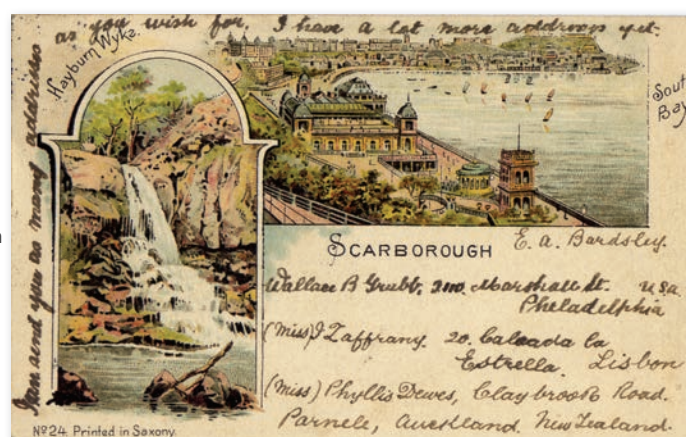 I can send you as many address
as you wish for. I have a lot more address yet.
Hayburn Wyke.
South
Bay
SCARBOROUGH
E. a. Bardsley.
Wallace B Grubb. 2110. Marshall St. U.S.a.
Philadelphia
(Miss) J Zaffrany. 20. Calcada la
Estrella. Lisbon
(Miss) Phyllis Dewes, Claybrook Road.
Parnele, Auckland. New Zealand.
Nº 24. Printed in Saxony.